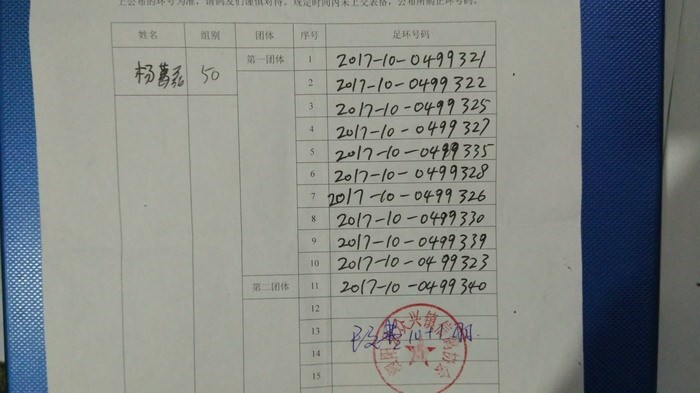 上公布的环号为准，请鸽友们谨慎对待。规定时间内未上交表格，公布所购正环号码。
姓名 组别 团体 序号 足环号码
杨 50 第一团体 1 2017-10-0499321
2 2017-10-0499322
3 2017-10-0499325
4 2017-10-0499327
5 2017-10-0499335
6 2017-10-0499328
7 2017-10-0499326
8 2017-10-0499330
9 2017-10-0499339
10 2017-10-0499323
第二团体 11 2017-10-0499340
12
13
14
15